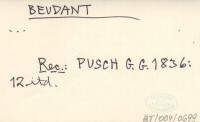 BEUDANT
...
Rec.: PUSCH G.G. 1836:
12 itd.
BT/004/0699